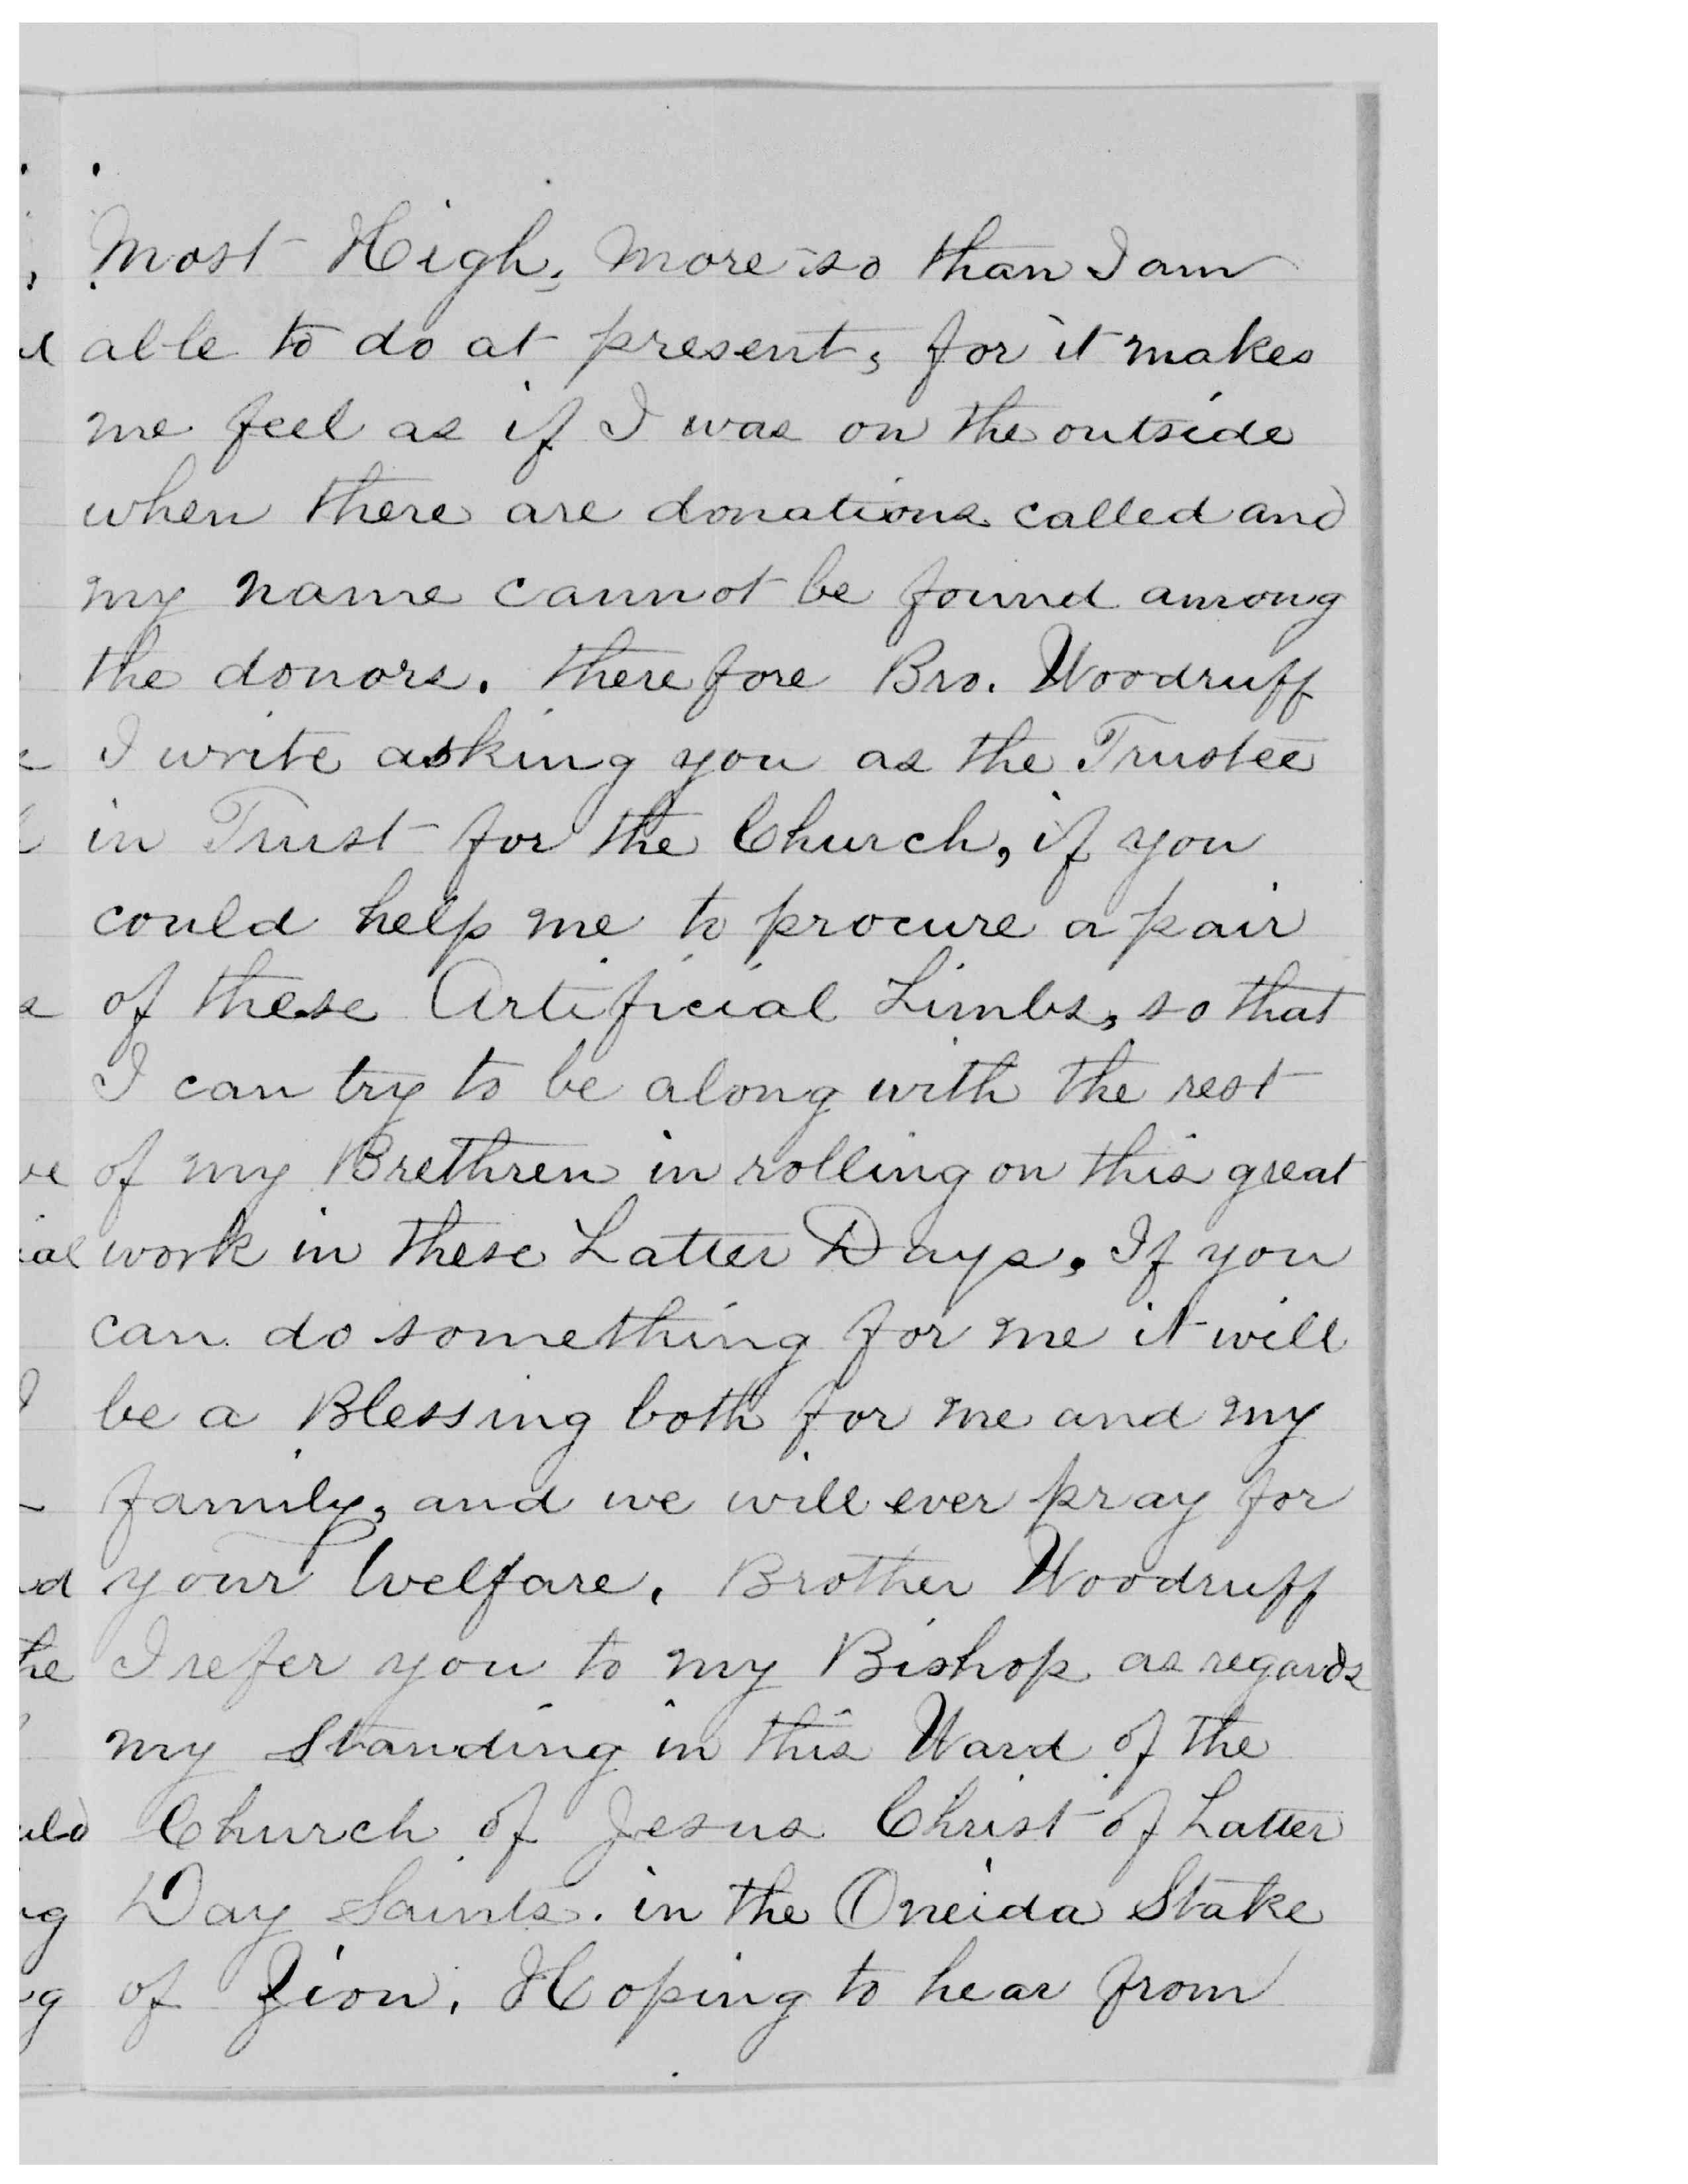 Most High, more so than I am
able to do at present, for it makes
me feel as if I was on the outside
when there are donations called and
my name cannot be found among
the donors. therefore Bro. Woodruff
I write asking you as the Trustee
in Trust for the Church, if you
could help me to procure a pair
of these Artificial Limbs, so that
I can try to be along with the rest
of my Brethren in rolling on this great
work in these Latter Days. If you
can do something for me it will
be a Blessing both for me and my
family, and we will ever pray for
your Welfare. Brother Woodruff
I refer you to my Bishop as regards
my Standing in this Ward of the
Church of Jesus Christ of Latter
Day Saints. in the Oneida Stake
of Zion. Hoping to hear from